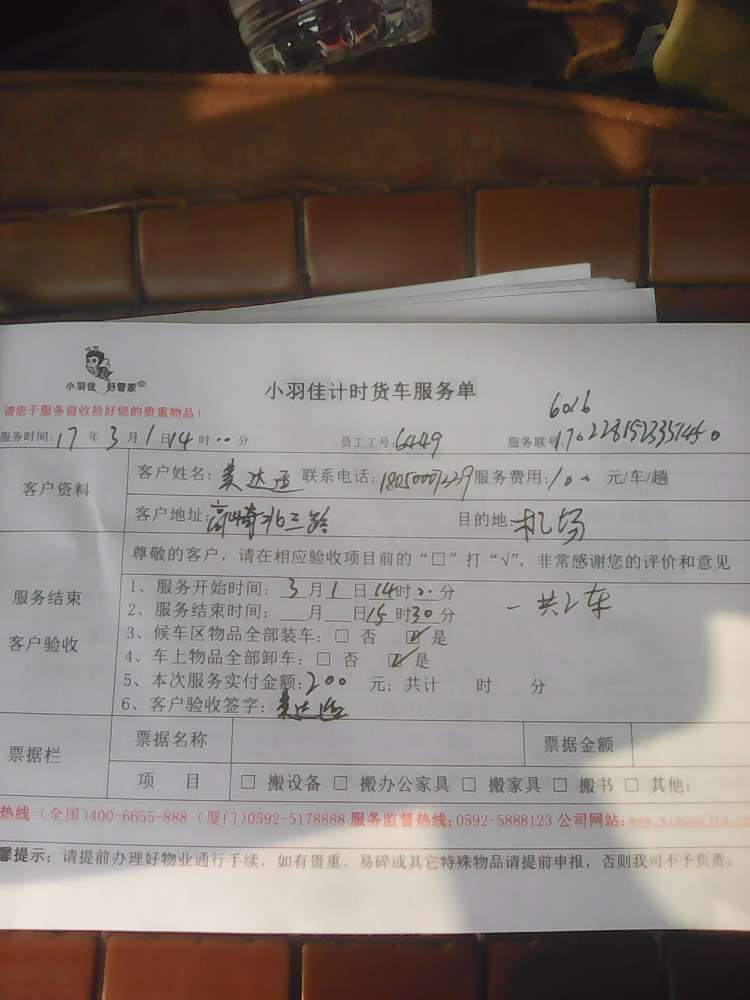 小羽佳 好管家
小羽佳计时货车服务单
请您于服务前收拾好您的贵重物品!
6026
服务时间:17年3月1日14时00分 员工工号6449 服务联号:
客户资料
客户姓名: 达 联系电话: 服务费用:100元/车/趟
客户地址:高崎北三路 目的地:机场
服务结束
客户验收
尊敬的客户,请在相应验收项目前的“□”打“√”,非常感谢您的评价和意见
1、服务开始时间:3月1日14时00分
2、服务结束时间: 月 日15时30分
一共2车
3、候车区物品全部装车:□ 否 ☑ 是
4、车上物品全部卸车:□ 否 ☑ 是
5、本次服务实付金额:200元;共计 时 分
6、客户验收签字: 达
票据栏
票据名称 票据金额
项 目 □ 搬设备 □ 搬办公家具 □ 搬家具 □ 搬书 □ 其他:
热线:(全国)400-6655-888 (厦门)0592-5178888 服务监督热线:0592-5888123 公司网站:
馨提示:请提前办理好物业通行手续,如有贵重、易碎或其它特殊物品请提前申报,否则我司不予负责。